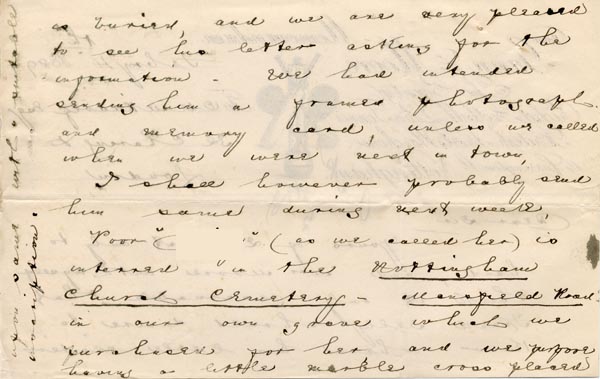 is buried, and we are very pleased
to see his letter asking for the
information - We had intended
sending him a framed photograph.
and memory card, unless we called
when we were next in town,
I shall however probably send
him same during next week,
Poor " " (as we called her) is
interred "in the Nottingham
Church Cemetery - Mansfield Road"
in our own grave which we
purchased for her and we purpose
having a little marble cross placed
upon same with a suitable
inscription.